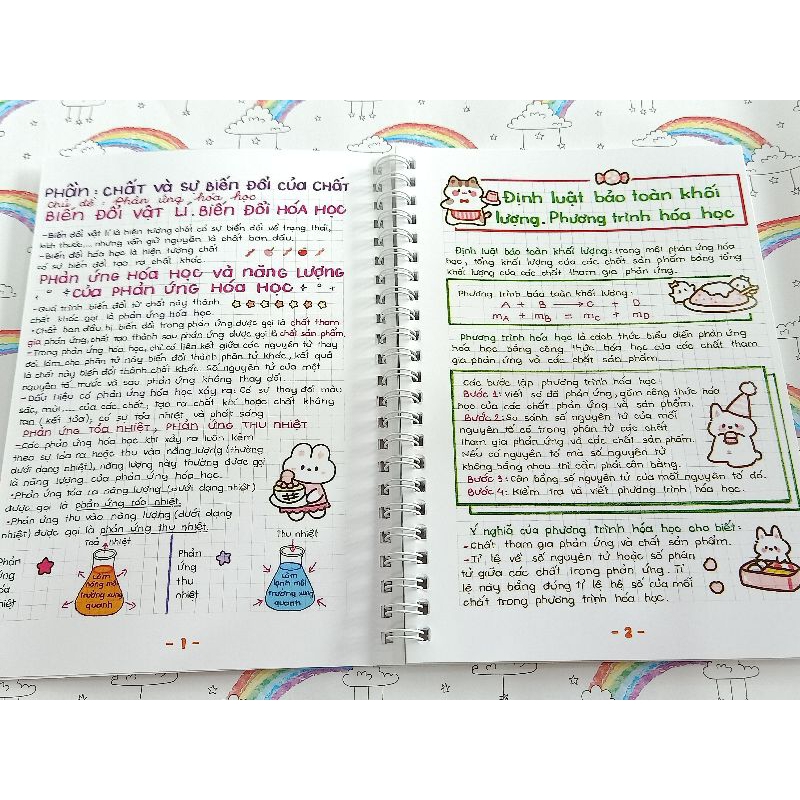 PHẦN: CHẤT VÀ SỰ BIẾN ĐỔI CỦA CHẤT
Chủ đề: Phản ứng hóa học
BIẾN ĐỔI VẬT LÍ. BIẾN ĐỔI HÓA HỌC
- Biến đổi vật lí là hiện tượng chất có sự biến đổi về trạng thái,
kích thước,... nhưng vẫn giữ nguyên là chất ban đầu.
- Biến đổi hóa học là hiện tượng chất
có sự biến đổi tạo ra chất khác.
PHẢN ỨNG HÓA HỌC VÀ NĂNG LƯỢNG
CỦA PHẢN ỨNG HÓA HỌC
- Quá trình biến đổi từ chất này thành
chất khác gọi là phản ứng hóa học.
- Chất ban đầu bị biến đổi trong phản ứng được gọi là chất tham
gia phản ứng, chất tạo thành sau phản ứng được gọi là chất sản phẩm.
- Trong phản ứng hóa học, chỉ có liên kết giữa các nguyên tử thay
đổi làm cho phân tử này biến đổi thành phân tử khác, kết quả
là chất này biến đổi thành chất khác. Số nguyên tử của một
nguyên tố trước và sau phản ứng không thay đổi.
- Dấu hiệu có phản ứng hóa học xảy ra: Có sự thay đổi màu
sắc, mùi,... của các chất, tạo ra chất khí hoặc chất không
tan (kết tủa), có sự tỏa nhiệt, và phát sáng
PHẢN ỨNG TỎA NHIỆT, PHẢN ỨNG THU NHIỆT
- Các phản ứng hóa học khi xảy ra luôn kèm
theo sự tỏa ra hoặc thu vào năng lượng (thường
dưới dạng nhiệt), năng lượng này thường được gọi
là năng lượng của phản ứng hóa học.
- Phản ứng tỏa ra năng lượng (dưới dạng nhiệt)
được gọi là phản ứng tỏa nhiệt.
- Phản ứng thu vào năng lượng (dưới dạng
nhiệt) được gọi là phản ứng thu nhiệt.
Phản
ứng
tỏa
nhiệt
Toả nhiệt
Làm
nóng môi
trường xung
quanh
Phản
ứng
thu
nhiệt
thu nhiệt
Làm
lạnh môi
trường xung
quanh
- 1 -
Định luật bảo toàn khối
lượng. Phương trình hóa học
Định luật bảo toàn khối lượng: trong một phản ứng hóa
học, tổng khối lượng của các chất sản phẩm bằng tổng
khối lượng của các chất tham gia phản ứng.
Phương trình bảo toàn khối lượng:
A + B → C + D
mA + mB = mC + mD
Phương trình hóa học là cách thức biểu diễn phản ứng
hóa học bằng công thức hóa học của các chất tham
gia phản ứng và các chất sản phẩm.
Các bước lập phương trình hóa học
Bước 1: Viết sơ đồ phản ứng, gồm công thức hóa
học của các chất phản ứng và sản phẩm.
Bước 2: So sánh số nguyên tử của mỗi
nguyên tố có trong phân tử các chất
tham gia phản ứng và các chất sản phẩm.
Nếu có nguyên tố mà số nguyên tử
không bằng nhau thì cần phải cân bằng.
Bước 3: Cân bằng số nguyên tử của mỗi nguyên tố đó.
Bước 4: Kiểm tra và viết phương trình hóa học.
Ý nghĩa của phương trình hóa học cho biết:
- Chất tham gia phản ứng và chất sản phẩm.
- Tỉ lệ về số nguyên tử hoặc số phân
tử giữa các chất trong phản ứng. Tỉ
lệ này bằng đúng tỉ lệ hệ số của mỗi
chất trong phương trình hóa học.
- 2 -